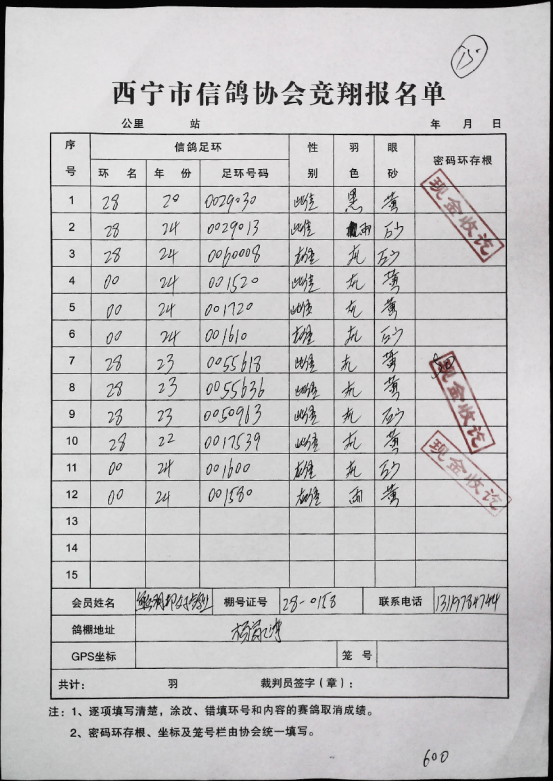 150
西宁市信鸽协会竞翔报名单
公里 站 年 月 日
序号 信鸽足环 性别 羽色 眼砂 密码环存根
环名 年份 足环号码
1 28 20 0029030 雌 黑 黄
2 28 24 0029013 雌 雨 砂
3 28 24 0060008 雄 灰 砂
4 00 24 001520 雌 灰 黄
5 00 24 001720 雌 灰 黄
6 00 24 001610 雄 灰 砂
7 28 23 0055618 雌 灰 黄
8 28 23 0055636 雌 灰 黄
9 28 23 0050963 雌 灰 砂
10 28 22 0017539 雌 灰 黄
11 00 24 001600 雄 灰 砂
12 00 24 001580 雄 雨 黄
13
14
15
现金收讫
现金收讫
现金收讫
会员姓名 棚号证号 28-0158 联系电话
鸽棚地址
GPS坐标 笼号
共计： 羽 裁判员签字（章）：
注：1、逐项填写清楚，涂改、错填环号和内容的赛鸽取消成绩。
2、密码环存根、坐标及笼号栏由协会统一填写。
600